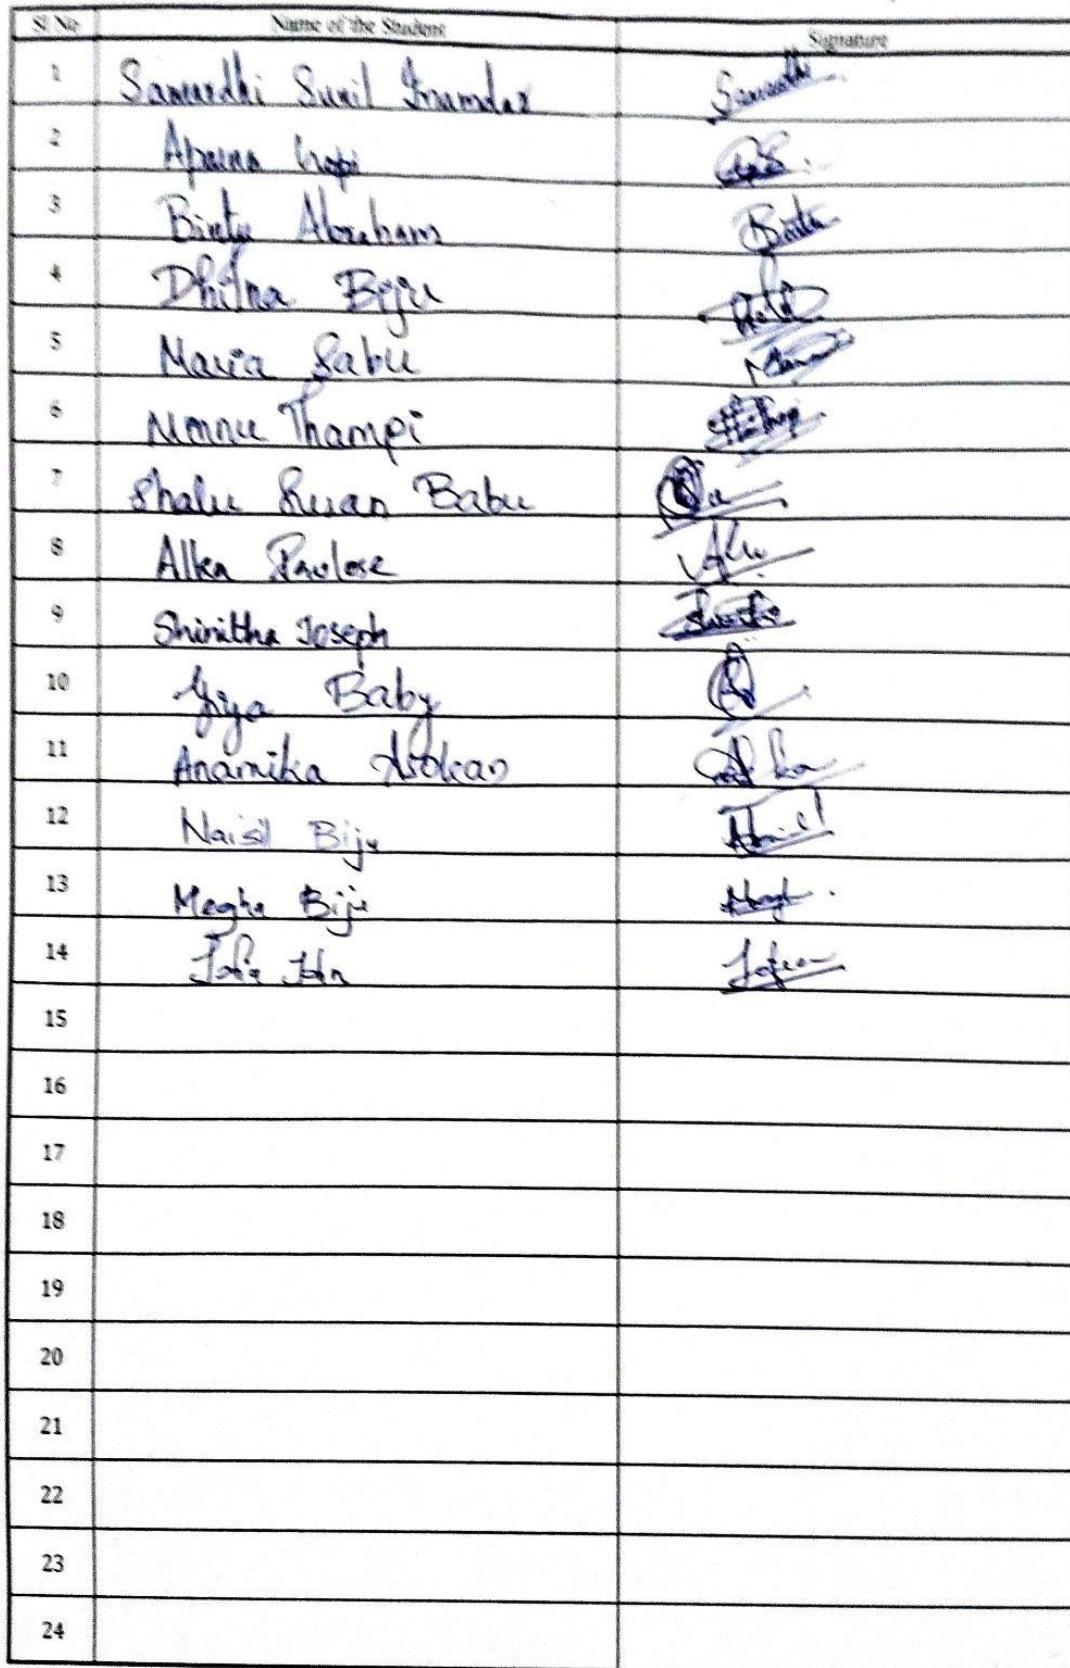 Sl. No Name of the Student Signature
1 Samardhi Sunil Inamdar Samardhi
2 Aparna Gopi
3 Bintu Abraham Bintu
4 Dhilna Biju
5 Maria Sabu
6 Minnu Thampi
7 Shalu Susan Babu
8 Alka Paulose
9 Shinitha Joseph
10 Jiya Baby
11 Anamika Asokan
12 Naisil Biju
13 Megha Biju
14 John
15
16
17
18
19
20
21
22
23
24